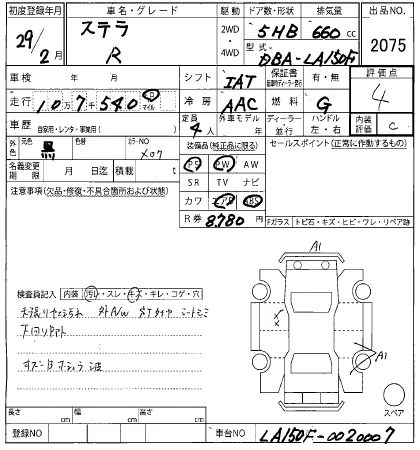 初度登録年月 車名・グレード 駆動 ドア数・形状 排気量 出品NO.
29/2月 ステラ R 2WD・4WD 5HB 660cc 2075
型式 DBA-LA150F
車検 年 月 シフト IAT 保証書 有・無 評価点
走行 10万7千540 km マイル 冷房 AAC 燃料 G 4
車歴 自家用・レンタ・事業用( ) 定員 4人 外車モデル 年 ディーラー・並行 ハンドル 左・右 内装評価 C
外色 元色 黒 色替 カラーNO X07 装備品(純正品に限る) セールスポイント(正常に作動するもの)
名義変更期限 月 日迄 積載 t PS PW AW
注意事項(欠品・修復・不具合箇所および状態) SR TV ナビ
カワ エアB ABS
R券 8,780円
Fガラス トビ石・キズ・ヒビ・ワレ・リペア跡
A1
検査員記入 内装 汚レ・スレ・キズ・キレ・コゲ・穴
外A/W
下回り
A1
スペア
長さ cm 幅 cm 高さ cm
登録NO 月 日 車台NO LA150F-0020007